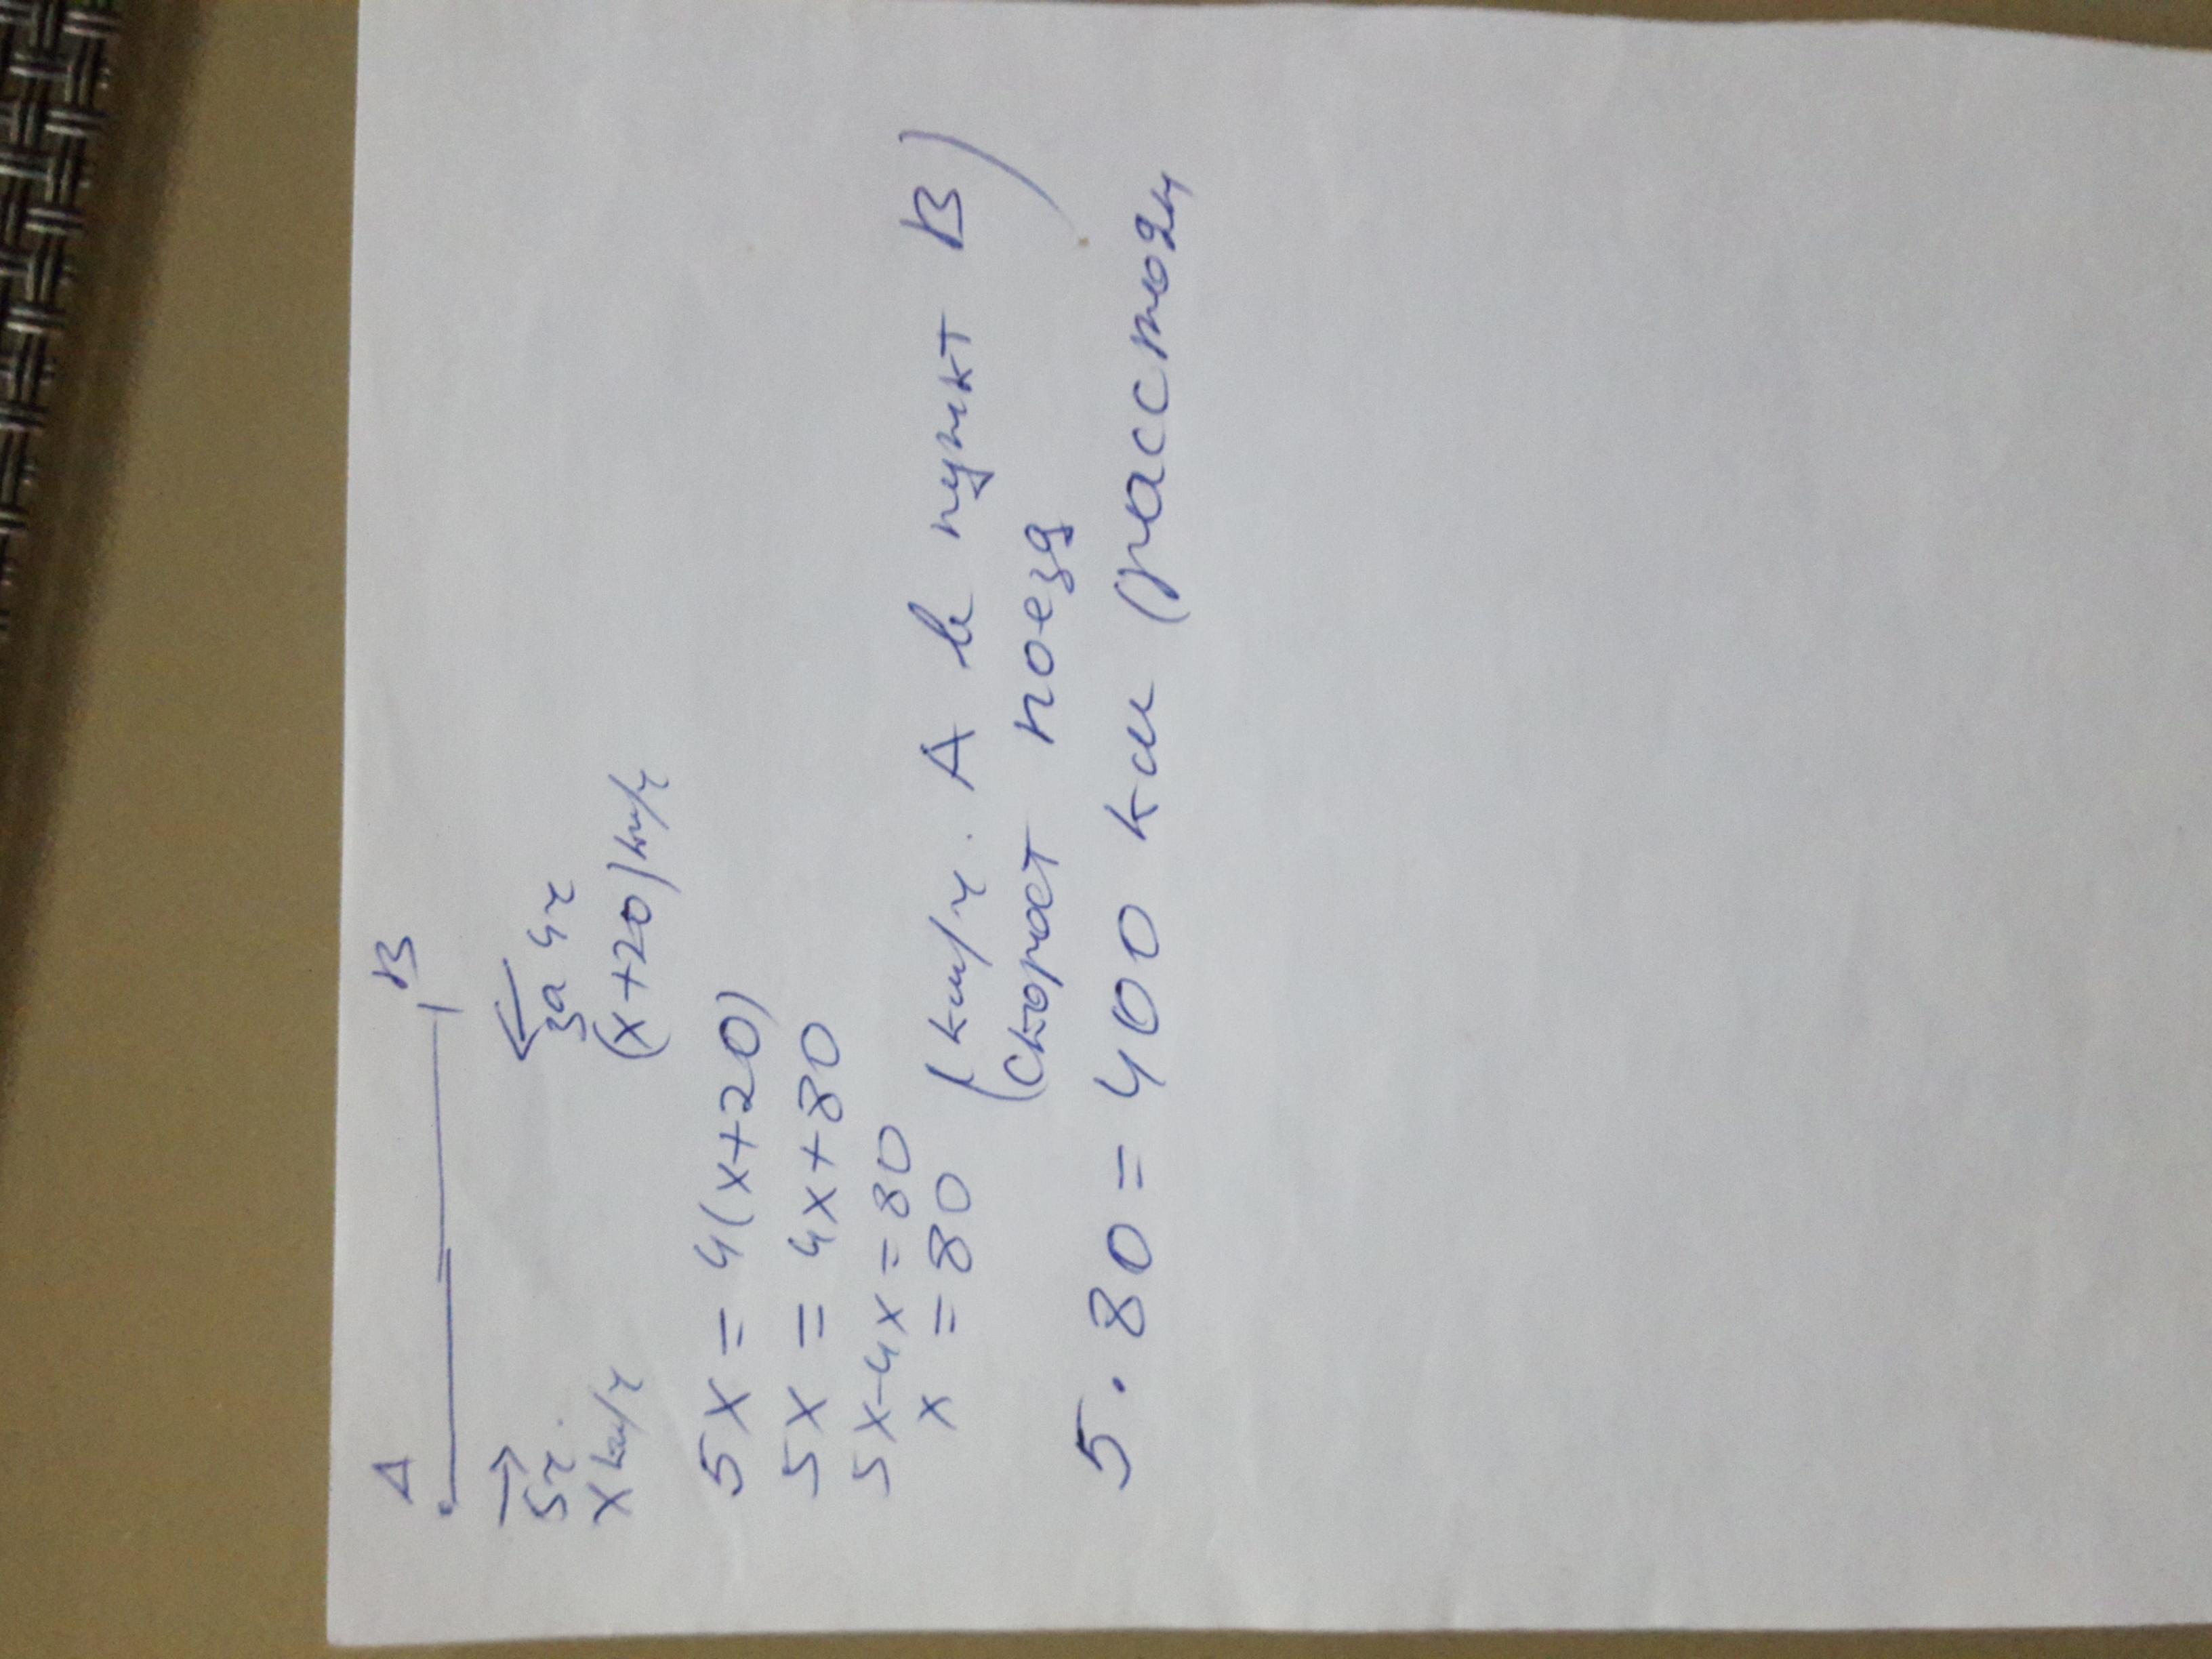 A B
5ч. за 4ч
x км/ч (x+20) км/ч
5x = 4(x+20)
5x = 4x+80
5x-4x=80
x = 80 (км/ч. A в пункт B)
(скорост поезд
5·80=400 км (расстоян